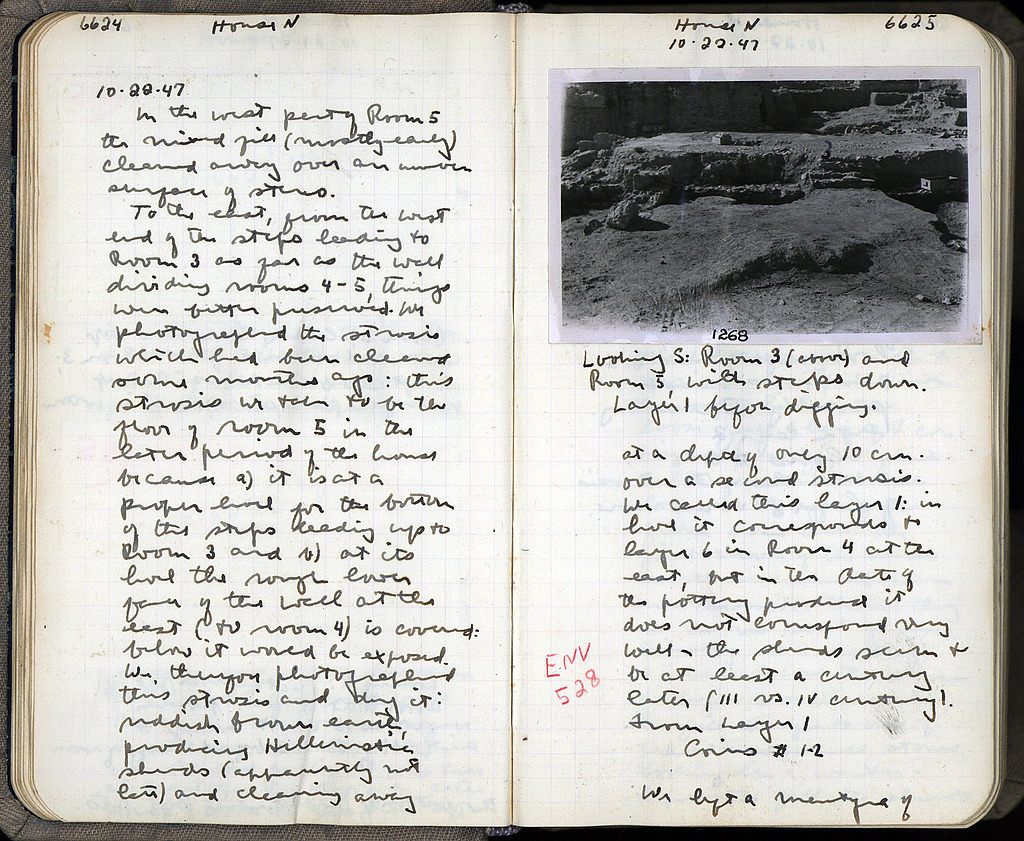 6624 House N
10·22·47
In the west part of Room 5
the mixed fill (mostly early)
cleared away over an uneven
surface of stereo.
To the east, from the west
end of the steps leading to
Room 3 as far as the wall
dividing rooms 4-5, things
were better preserved. We
photographed the strosis
which had been cleared
some months ago: this
strosis we take to be the
floor of room 5 in the
later period of the house
because a) it is at a
proper level for the bottom
of the steps leading up to
Room 3 and b) at its
level the rough lower
face of the wall at the
east (to room 4) is covered:
below it would be exposed.
We therefore photographed
this strosis and dug it:
reddish brown earth,
producing Hellenistic
sherds (apparently not
late) and clearing away
House N 6625
10·22·47
1268
Looking S: Room 3 (above) and
Room 5, with steps down.
Layer 1 before digging.
at a depth of only 10 cm.
over a second strosis.
We called this layer 1: in
level it corresponds to
layer 6 in Room 4 at the
east, but in the date of
the pottery produced it
does not correspond very
well – the sherds seem to
be at least a century
later (III vs. IV century).
From Layer 1
Coins # 1-2
ENV
528
We left a martyra of